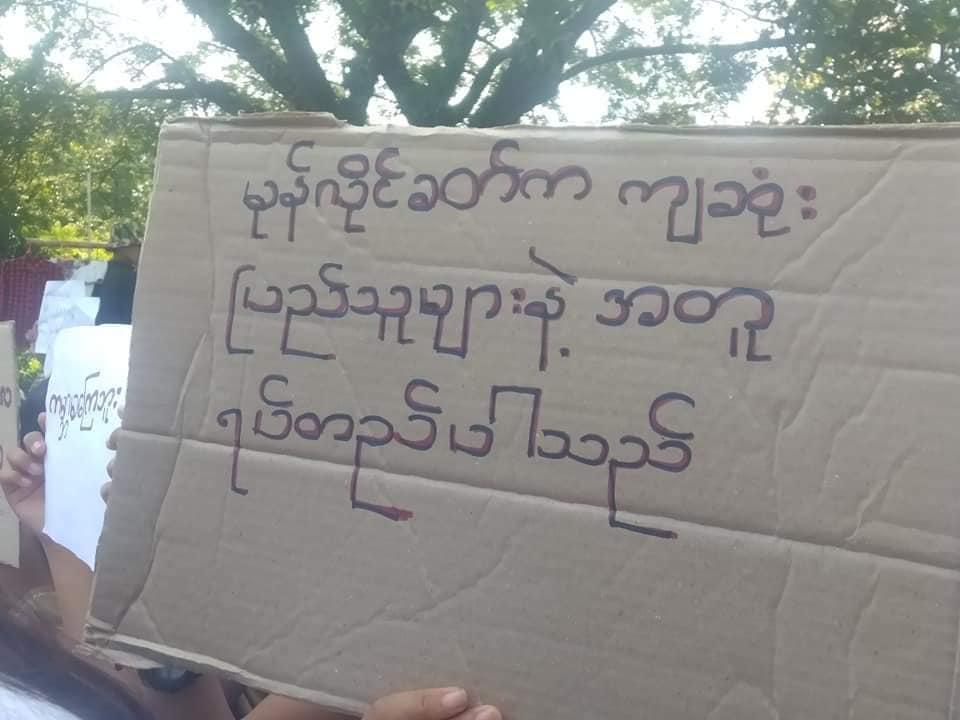 မုန်လိုင်ခတ်က ကျခဆုံး
ပြည်သူများနဲ့ အတူ
ရပ်တည်ပါသည်
ကမ္ဘာမကြေဘူး